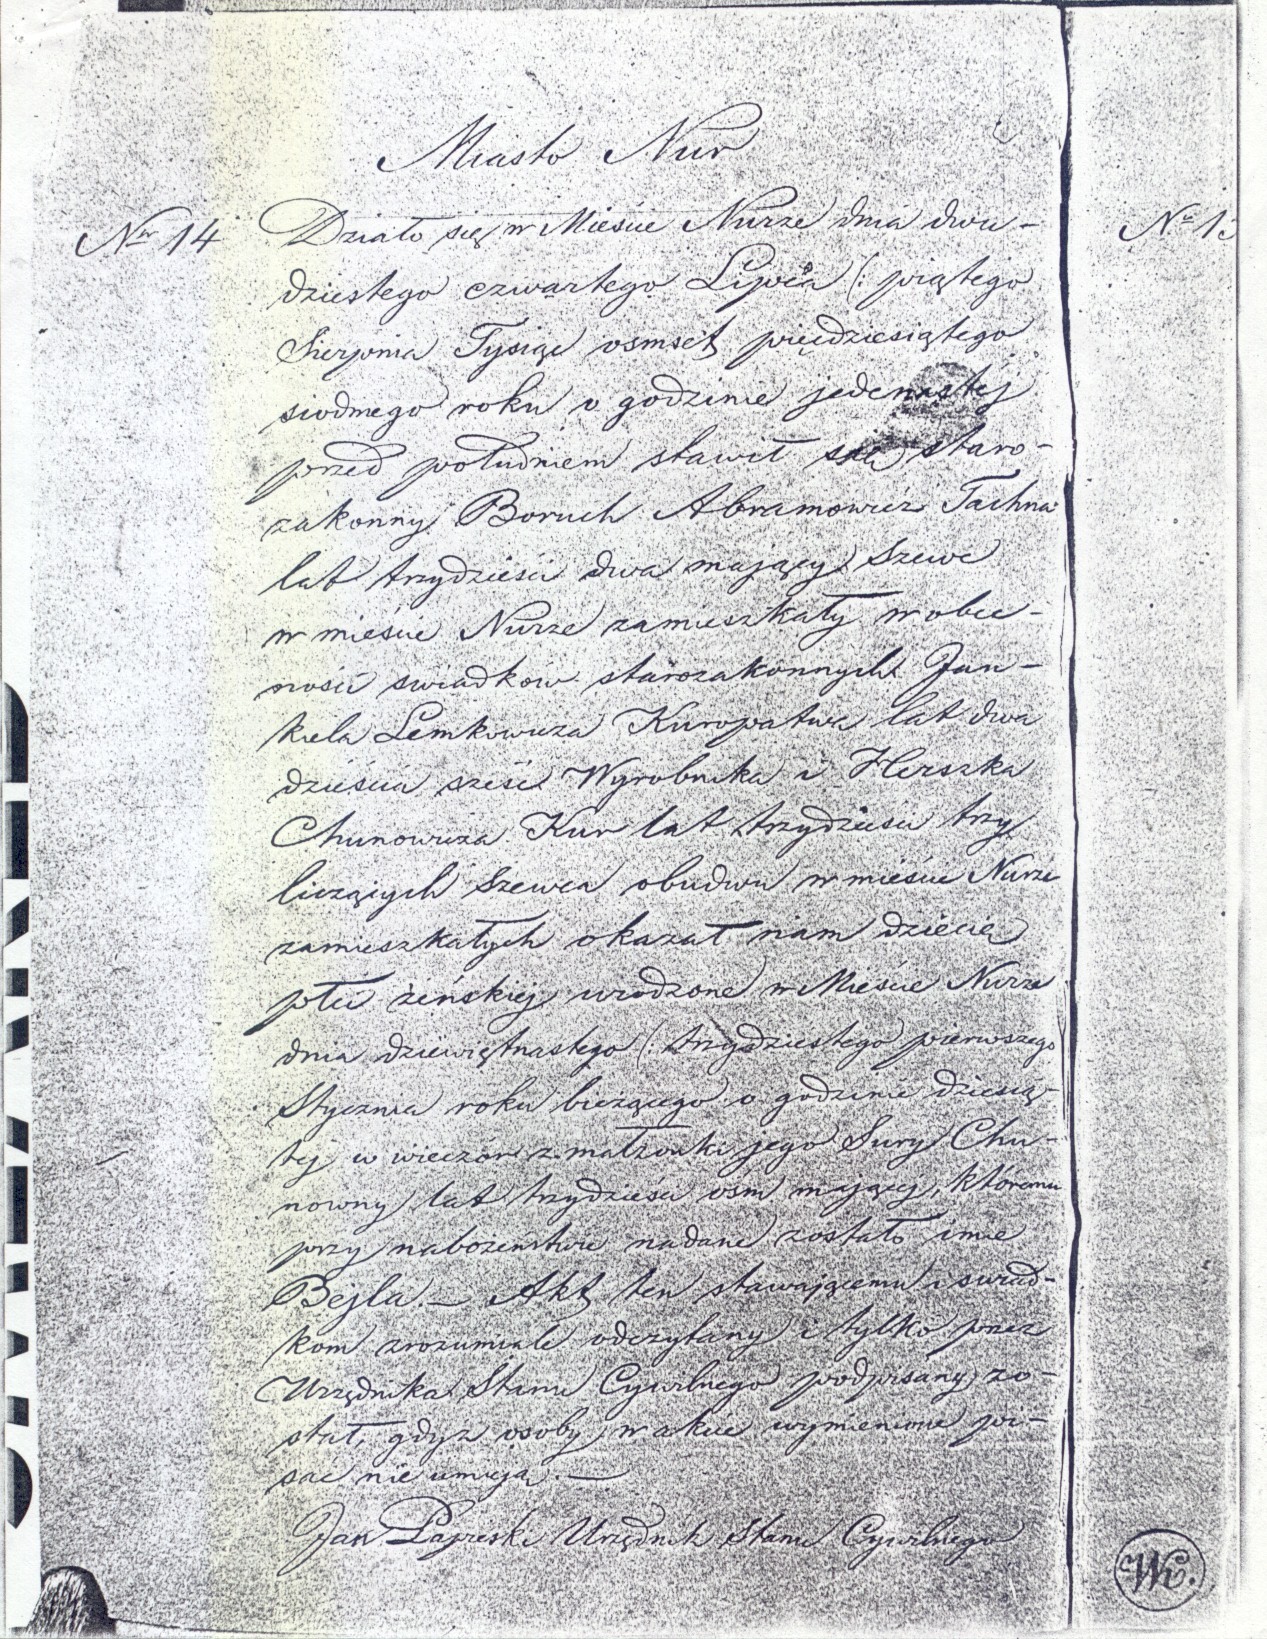 Miasto Nur
Nr 14
Działo się w Mieście Nurze dnia dwu-
dziestego czwartego Lipca (: piątego
Sierpnia Tysiąc ośmset pięćdziesiątego
siodmego roku o godzinie jedenastéj
przed południem stawił się staro-
zakonny Boruch Abramowicz Tachna
lat trzydzieści dwa mający Szewc
w mieście Nurze zamieszkały w obec-
ności swiadków starozakonnych Jan-
kiela Lemkowicza Kuropatwa lat dwa
dzieścia sześć Wyrobnika i Herszka
Chunowicza Kur lat trzydzieści trzy
liczących Szewca obudwu w mieście Nurze
zamieszkałych okazał nam dziecię
płci żeńskiej urodzone w Mieście Nurze
dnia dziewiętnastego (: trzydziestego pierwszego
Stycznia roku bieżącego o godzinie dziesią-
tej w wieczór z małżonki jego Sury Chu-
nowny lat trzydzieści ośm mającej, któremu
przy nabożenstwie nadane zostało imie
Bejla. — Akt ten stawającemu i swiad-
kom zrozumiale odczytany i tylko przez
Urzędnika Stanu Cywilnego podpisany zo-
stał, gdyż osoby w akcie wymienione pi-
sać nie umieją. —
Jan Urzędnik Stanu Cywilnego
No 1